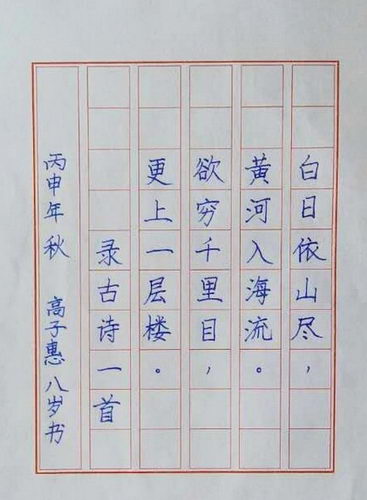 白日依山尽，
黄河入海流。
欲穷千里目，
更上一层楼。
录古诗一首
丙申年秋 高子惠八岁书